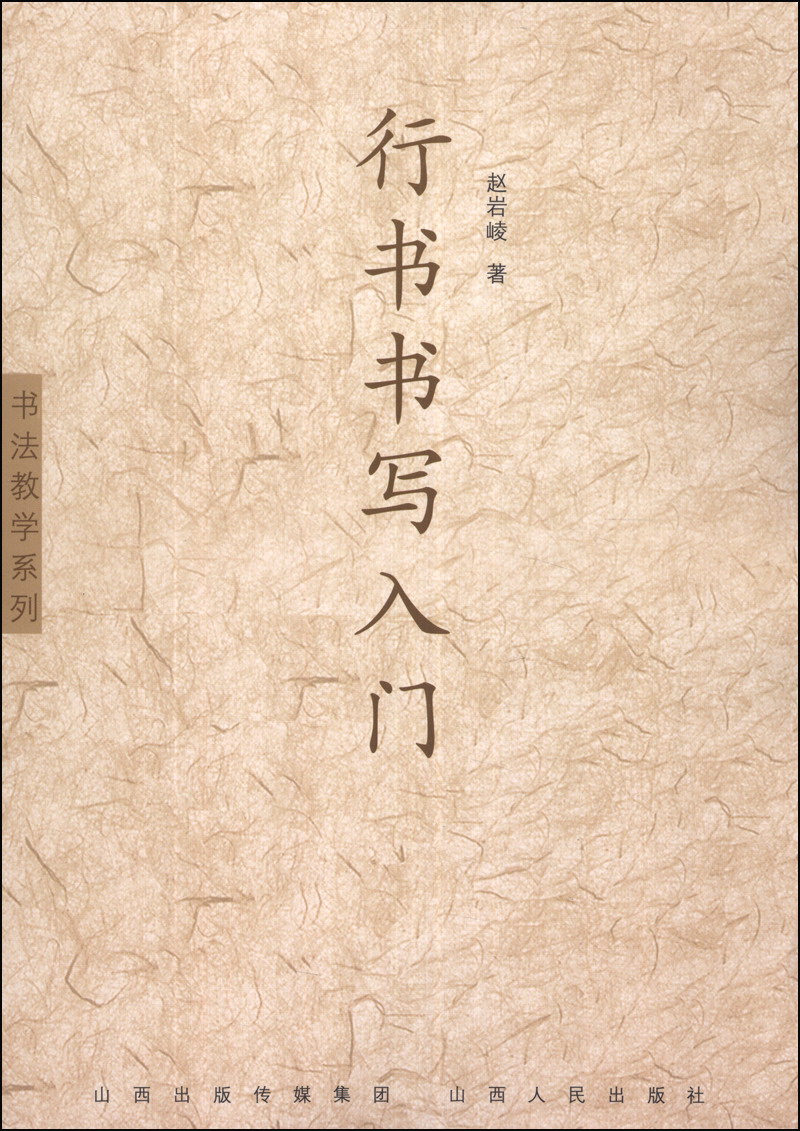 行书书写入门
赵岩崚 著
书法教学系列
山西出版传媒集团 山西人民出版社